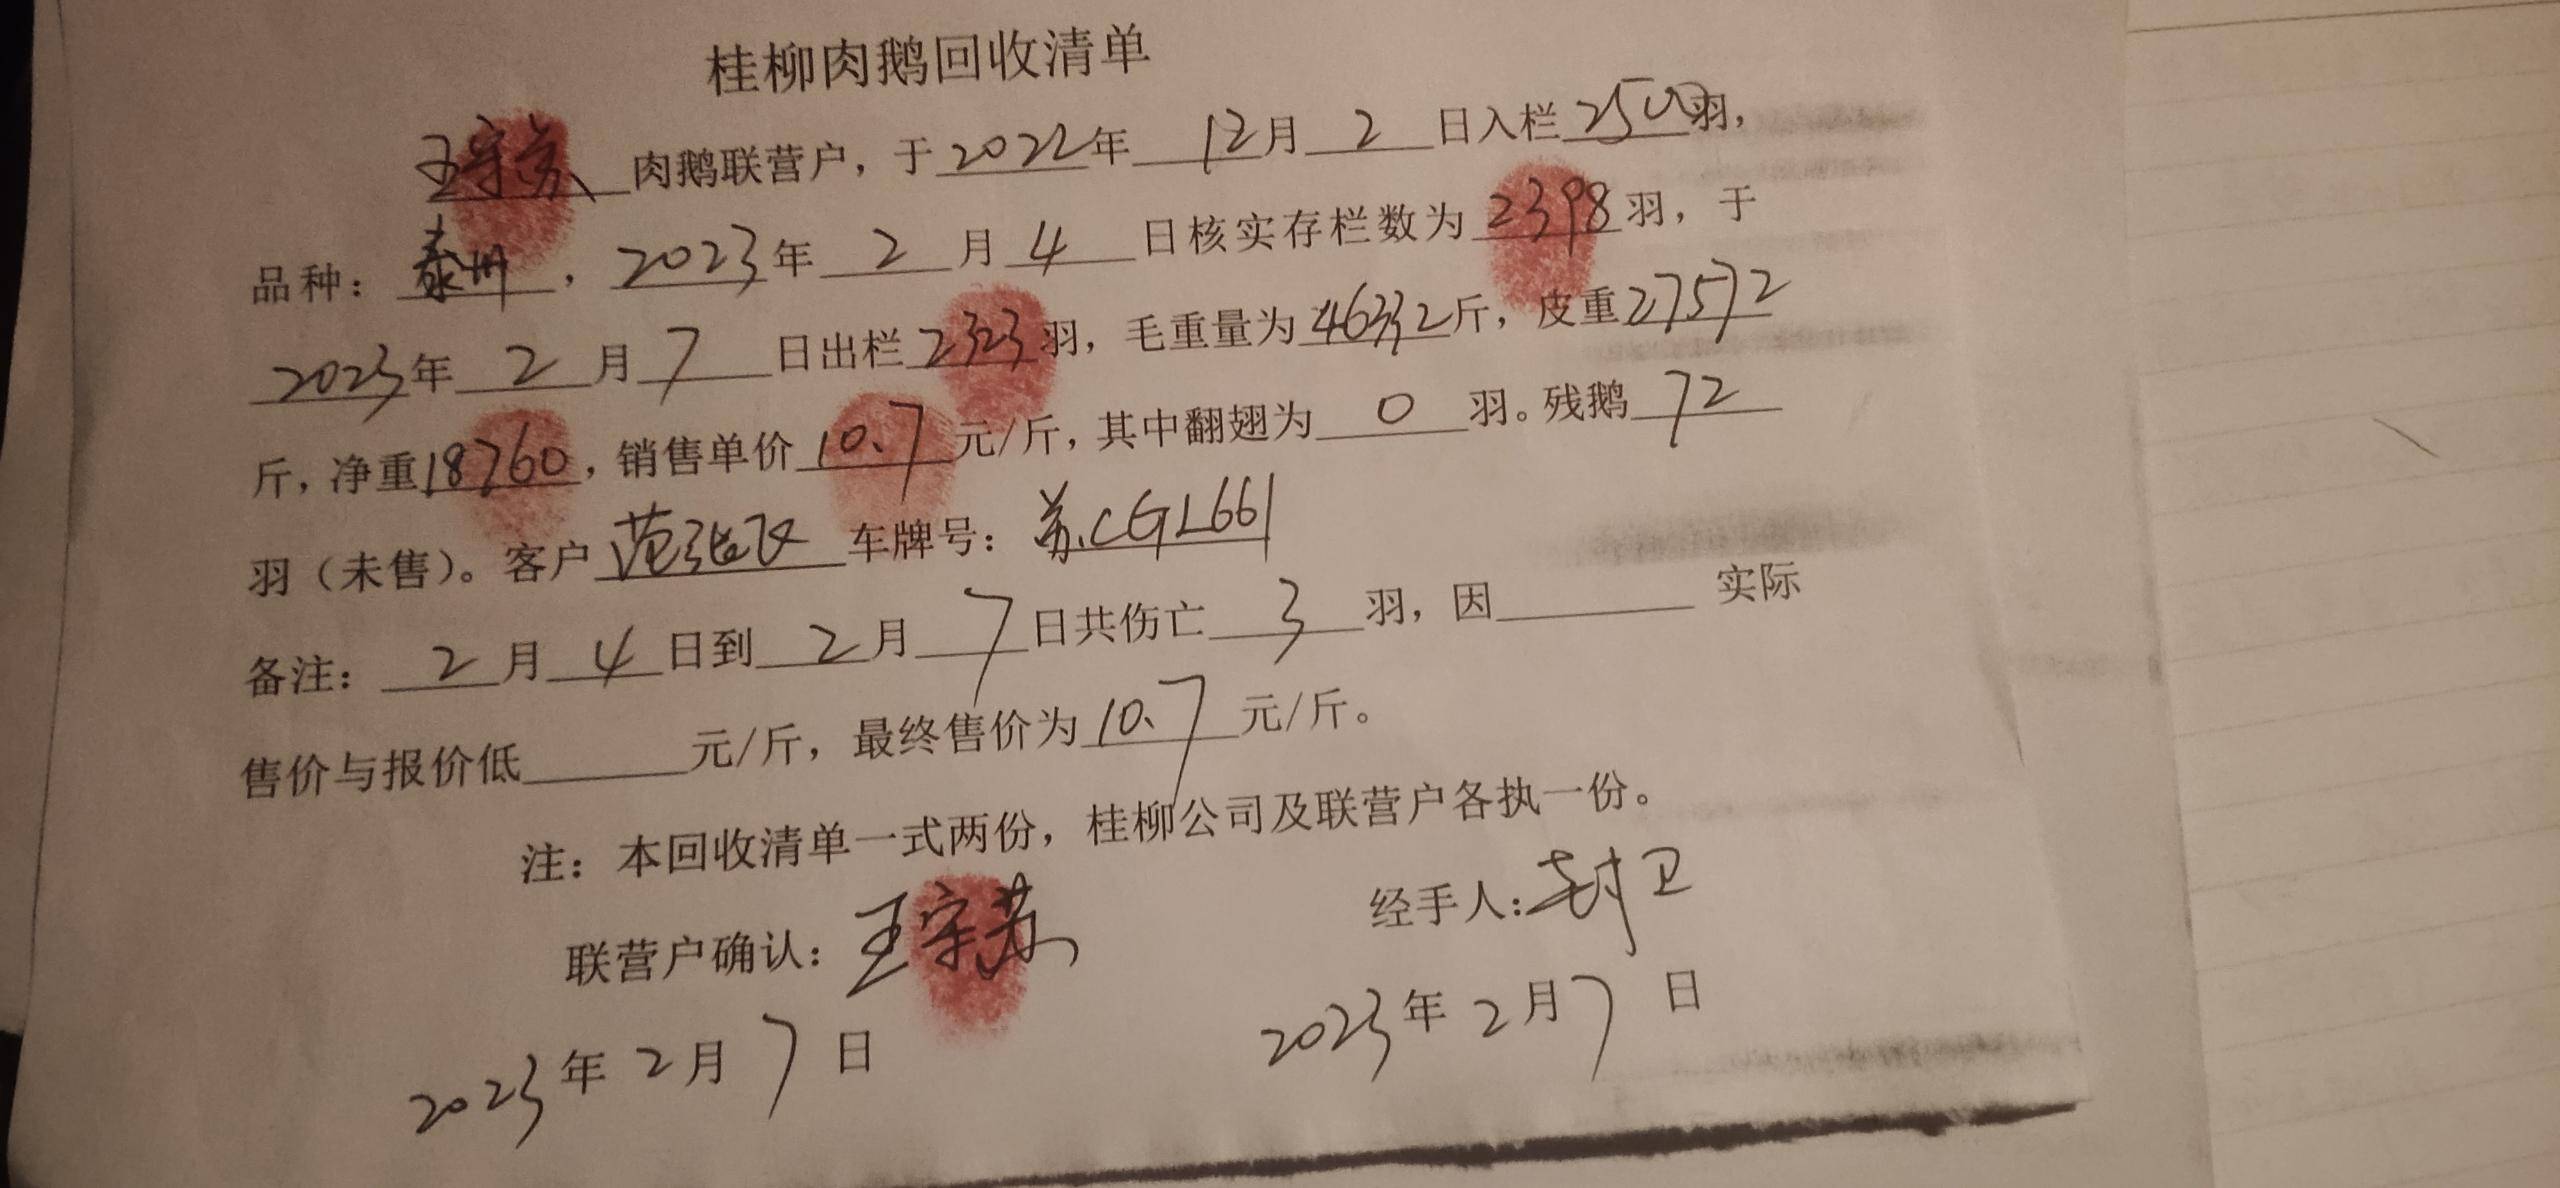 桂柳肉鹅回收清单
王宗苏肉鹅联营户，于2022年12月2日入栏2500羽，
品种：泰州，2023年2月4日核实存栏数为2398羽，于
2023年2月7日出栏2323羽，毛重量为46332斤，皮重27572
斤，净重18760，销售单价10.7元/斤，其中翻翅为0羽。残鹅72
羽（未售）。客户范张飞车牌号：苏CGL661
备注：2月4日到2月7日共伤亡3羽，因______实际
售价与报价低______元/斤，最终售价为10.7元/斤。
注：本回收清单一式两份，桂柳公司及联营户各执一份。
联营户确认：王宗苏 经手人：封卫
2023年2月7日 2023年2月7日